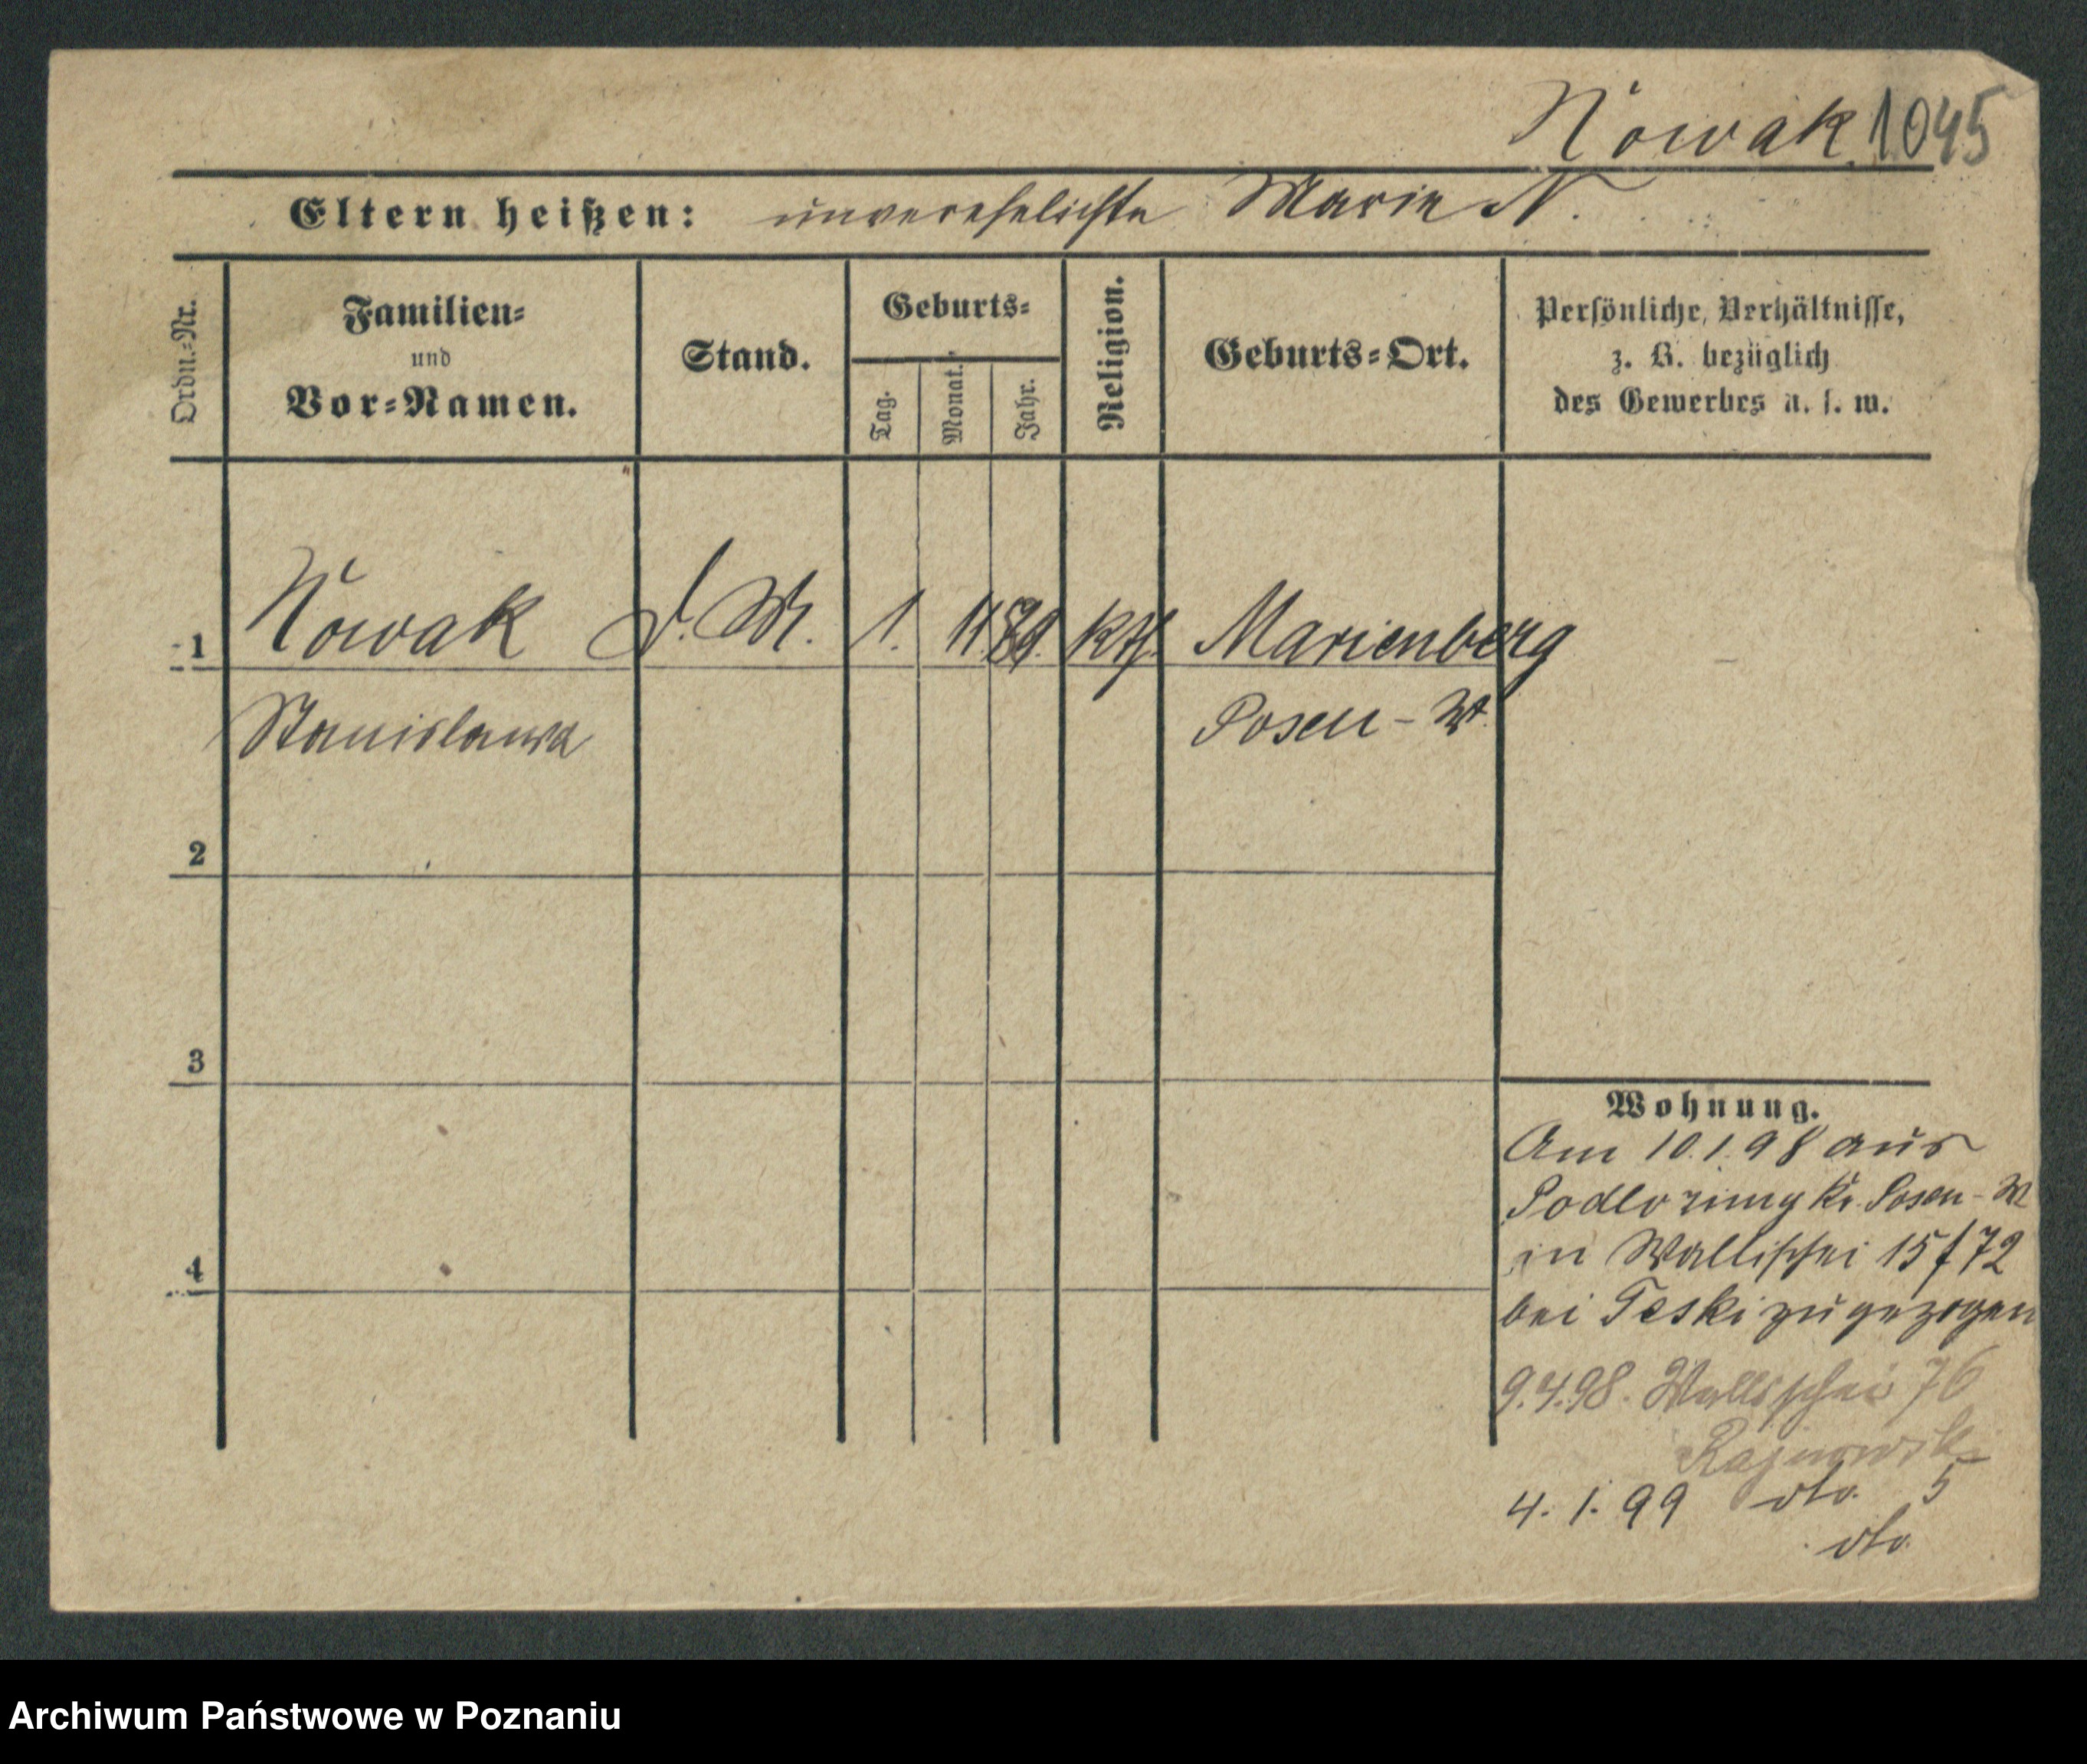 Nowak 1045
Eltern heißen: unverehelichte Marie N.
Ordn.-Nr.
Familien-
und
Vor-Namen.
Stand.
Geburts-
Tag.
Monat.
Jahr.
Religion.
Geburts-Ort.
Persönliche Verhältnisse,
z. B. bezüglich
des Gewerbes u. s. w.
1 Nowak 1. 11 kth. Marienberg
Stanislawa Posen - W.
2
3
4
Wohnung.
Am 10.1.98 aus
Kr. Posen - W
in Wallischei 15/72
bei Teski zugezogen
9.4.98. Wallischei 76
4. 1. 99 dto. 5
dto.
Archiwum Państwowe w Poznaniu